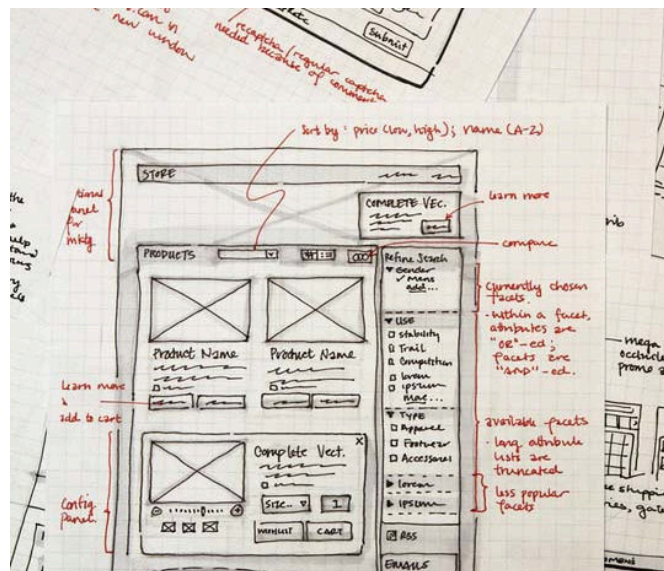 can in
new window
recaptcha/regular captcha
needed because of comment
Submit
Sort by: price (low, high); name (A-Z)
STORE
panel
for
mktg.
COMPLETE VEC.
learn more
PRODUCTS
compare
Refine Search
Gender
✓ Mens
add...
currently chosen
facets.
- within a facet,
attributes are
"OR"-ed;
facets are
"AND"-ed.
USE
Stability
Trail
Competition
lorem
ipsum
more...
Product Name
Product Name
learn more
&
add to cart
TYPE
Apparel
Footwear
Accessories
available facets
- long attribute
lists are
truncated
lorem
ipsum
less popular
facets
Config
panel.
Complete Vect.
X
Size..
1
WISHLIST
CART
RSS
EMAILS
the
help
rib
mega
promo
shipping